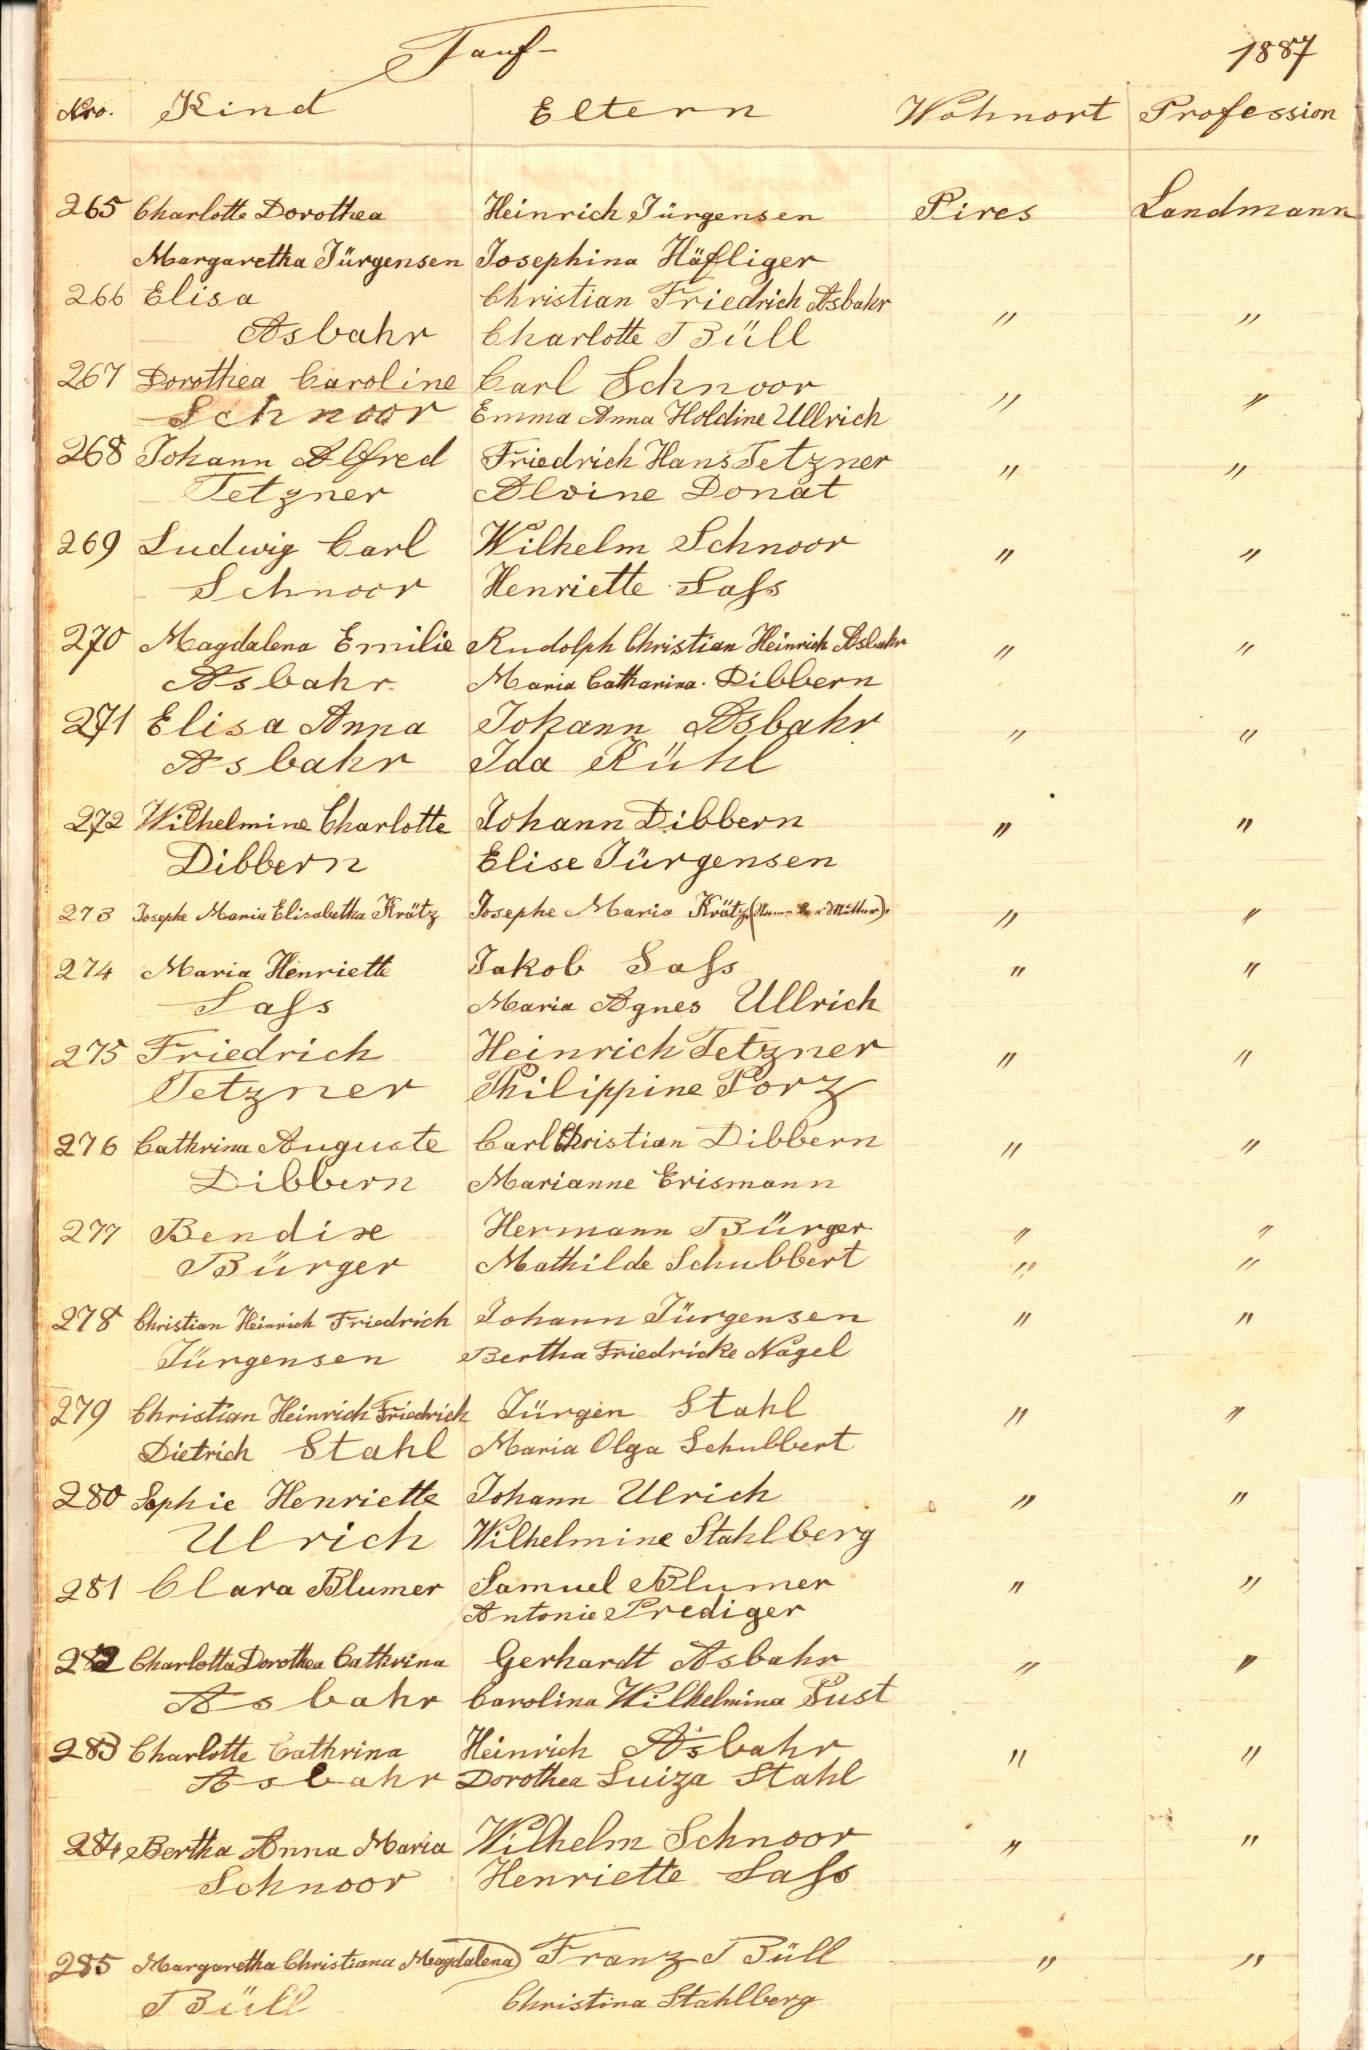 Tauf- 1887
Nro. Kind Eltern Wohnort Profession
265 Charlotte Dorothea Heinrich Jürgensen Pires Landmann
Margaretha Jürgensen Josephina Häfliger
266 Elisa Christian Friedrich Asbahr
Asbahr Charlotte Büll " "
267 Dorothea Caroline Carl Schnoor
Schnoor Emma Anna Holdine Ullrich " "
268 Johann Alfred Friedrich Hans Tetzner " "
Tetzner Alvine Donat
269 Ludwig Carl Wilhelm Schnoor " "
Schnoor Henriette Saſs
270 Magdalena Emilie Rudolph Christian Heinrich Asbahr " "
Asbahr Maria Catharina Dibbern
271 Elisa Anna Johann Asbahr " "
Asbahr Ida Kühl
272 Wilhelmine Charlotte Johann Dibbern " "
Dibbern Elise Jürgensen
273 Josephe Maria Elisabetha Krätz Josephe Maria Krätz (Name der Mutter). " "
274 Maria Henriette Jakob Saſs " "
Saſs Maria Agnes Ullrich
275 Friedrich Heinrich Tetzner " "
Tetzner Philippine Porz
276 Cathrina Auguste Carl Christian Dibbern " "
Dibbern Marianne Erismann
277 Bendixe Hermann Bürger " "
Bürger Mathilde Schubbert " "
278 Christian Heinrich Friedrich Johann Jürgensen " "
Jürgensen Bertha Friedricke Nagel
279 Christian Heinrich Friedrich Jürgen Stahl " "
Dietrich Stahl Maria Olga Schubbert
280 Sophie Henriette Johann Ulrich " "
Ulrich Wilhelmine Stahlberg
281 Clara Blumer Samuel Blumer " "
Antonie Prediger
282 Charlotta Dorothea Cathrina Gerhardt Asbahr " "
Asbahr Carolina Wilhelmina Pust
283 Charlotte Cathrina Heinrich Asbahr " "
Asbahr Dorothea Luiza Stahl
284 Bertha Anna Maria Wilhelm Schnoor " "
Schnoor Henriette Saſs
285 Margaretha Christiana Magdalena Franz Büll " "
Büll Christina Stahlberg